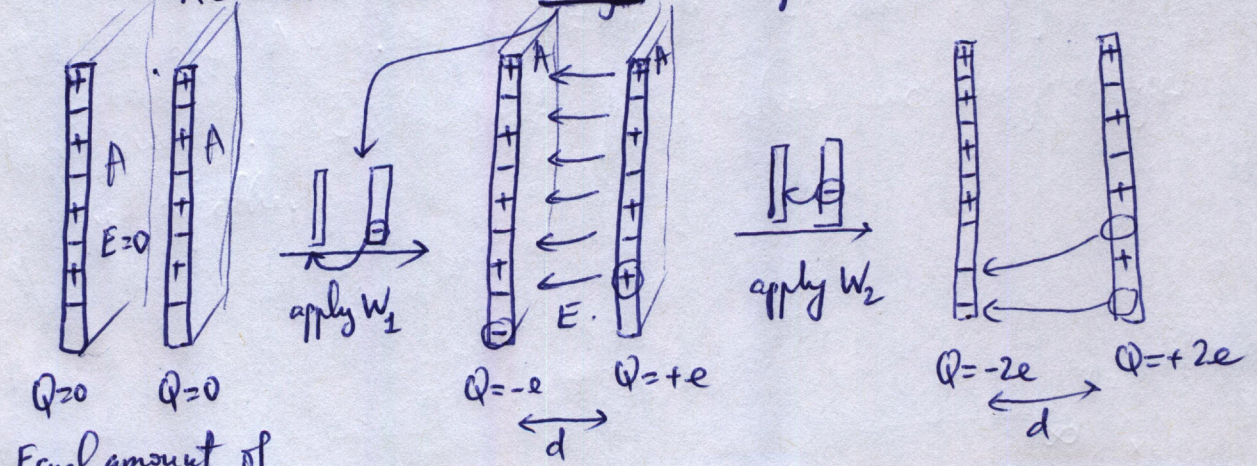 A
A
E=0
Q=0
Q=0
apply W₁
A
A
E.
Q=-e
Q=+e
d
apply W₂
Q=-2e
Q=+2e
d
Equal amount of